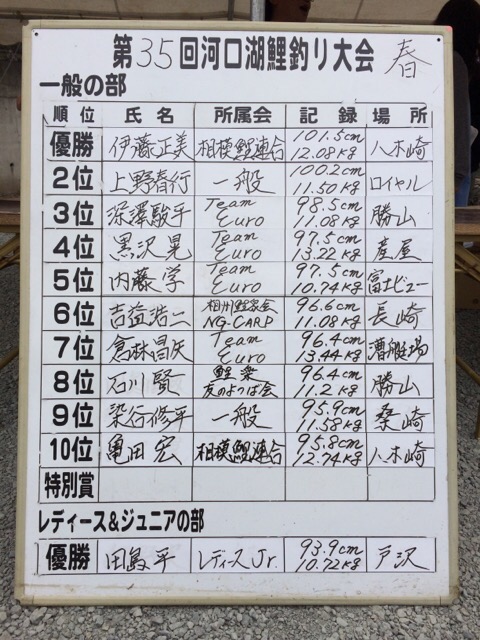 第35回河口湖鯉釣り大会 春
一般の部
順位 氏名 所属会 記録 場所
優勝 伊藤正美 相模鯉連合 101.5cm 12.08kg 八木崎
2位 上野春行 一般 100.2cm 11.50kg ロイヤル
3位 深澤駿平 Team Euro 98.5cm 11.08kg 勝山
4位 黒沢晃 Team Euro 97.5cm 13.22kg 産屋
5位 内藤学 Team Euro 97.5cm 10.74kg 富士ビュー
6位 吉益浩二 相州鯉家会 NG-CARP 96.6cm 11.08kg 長崎
7位 倉林昌矢 Team Euro 96.4cm 13.44kg 漕艇場
8位 石川賢 鯉楽 友のよつば会 96.4cm 11.2kg 勝山
9位 染谷修平 一般 95.9cm 11.58kg 桑崎
10位 亀田宏 相模鯉連合 95.8cm 12.74kg 八木崎
特別賞
レディース&ジュニアの部
優勝 田島平 レディースJr. 93.9cm 10.72kg 戸沢